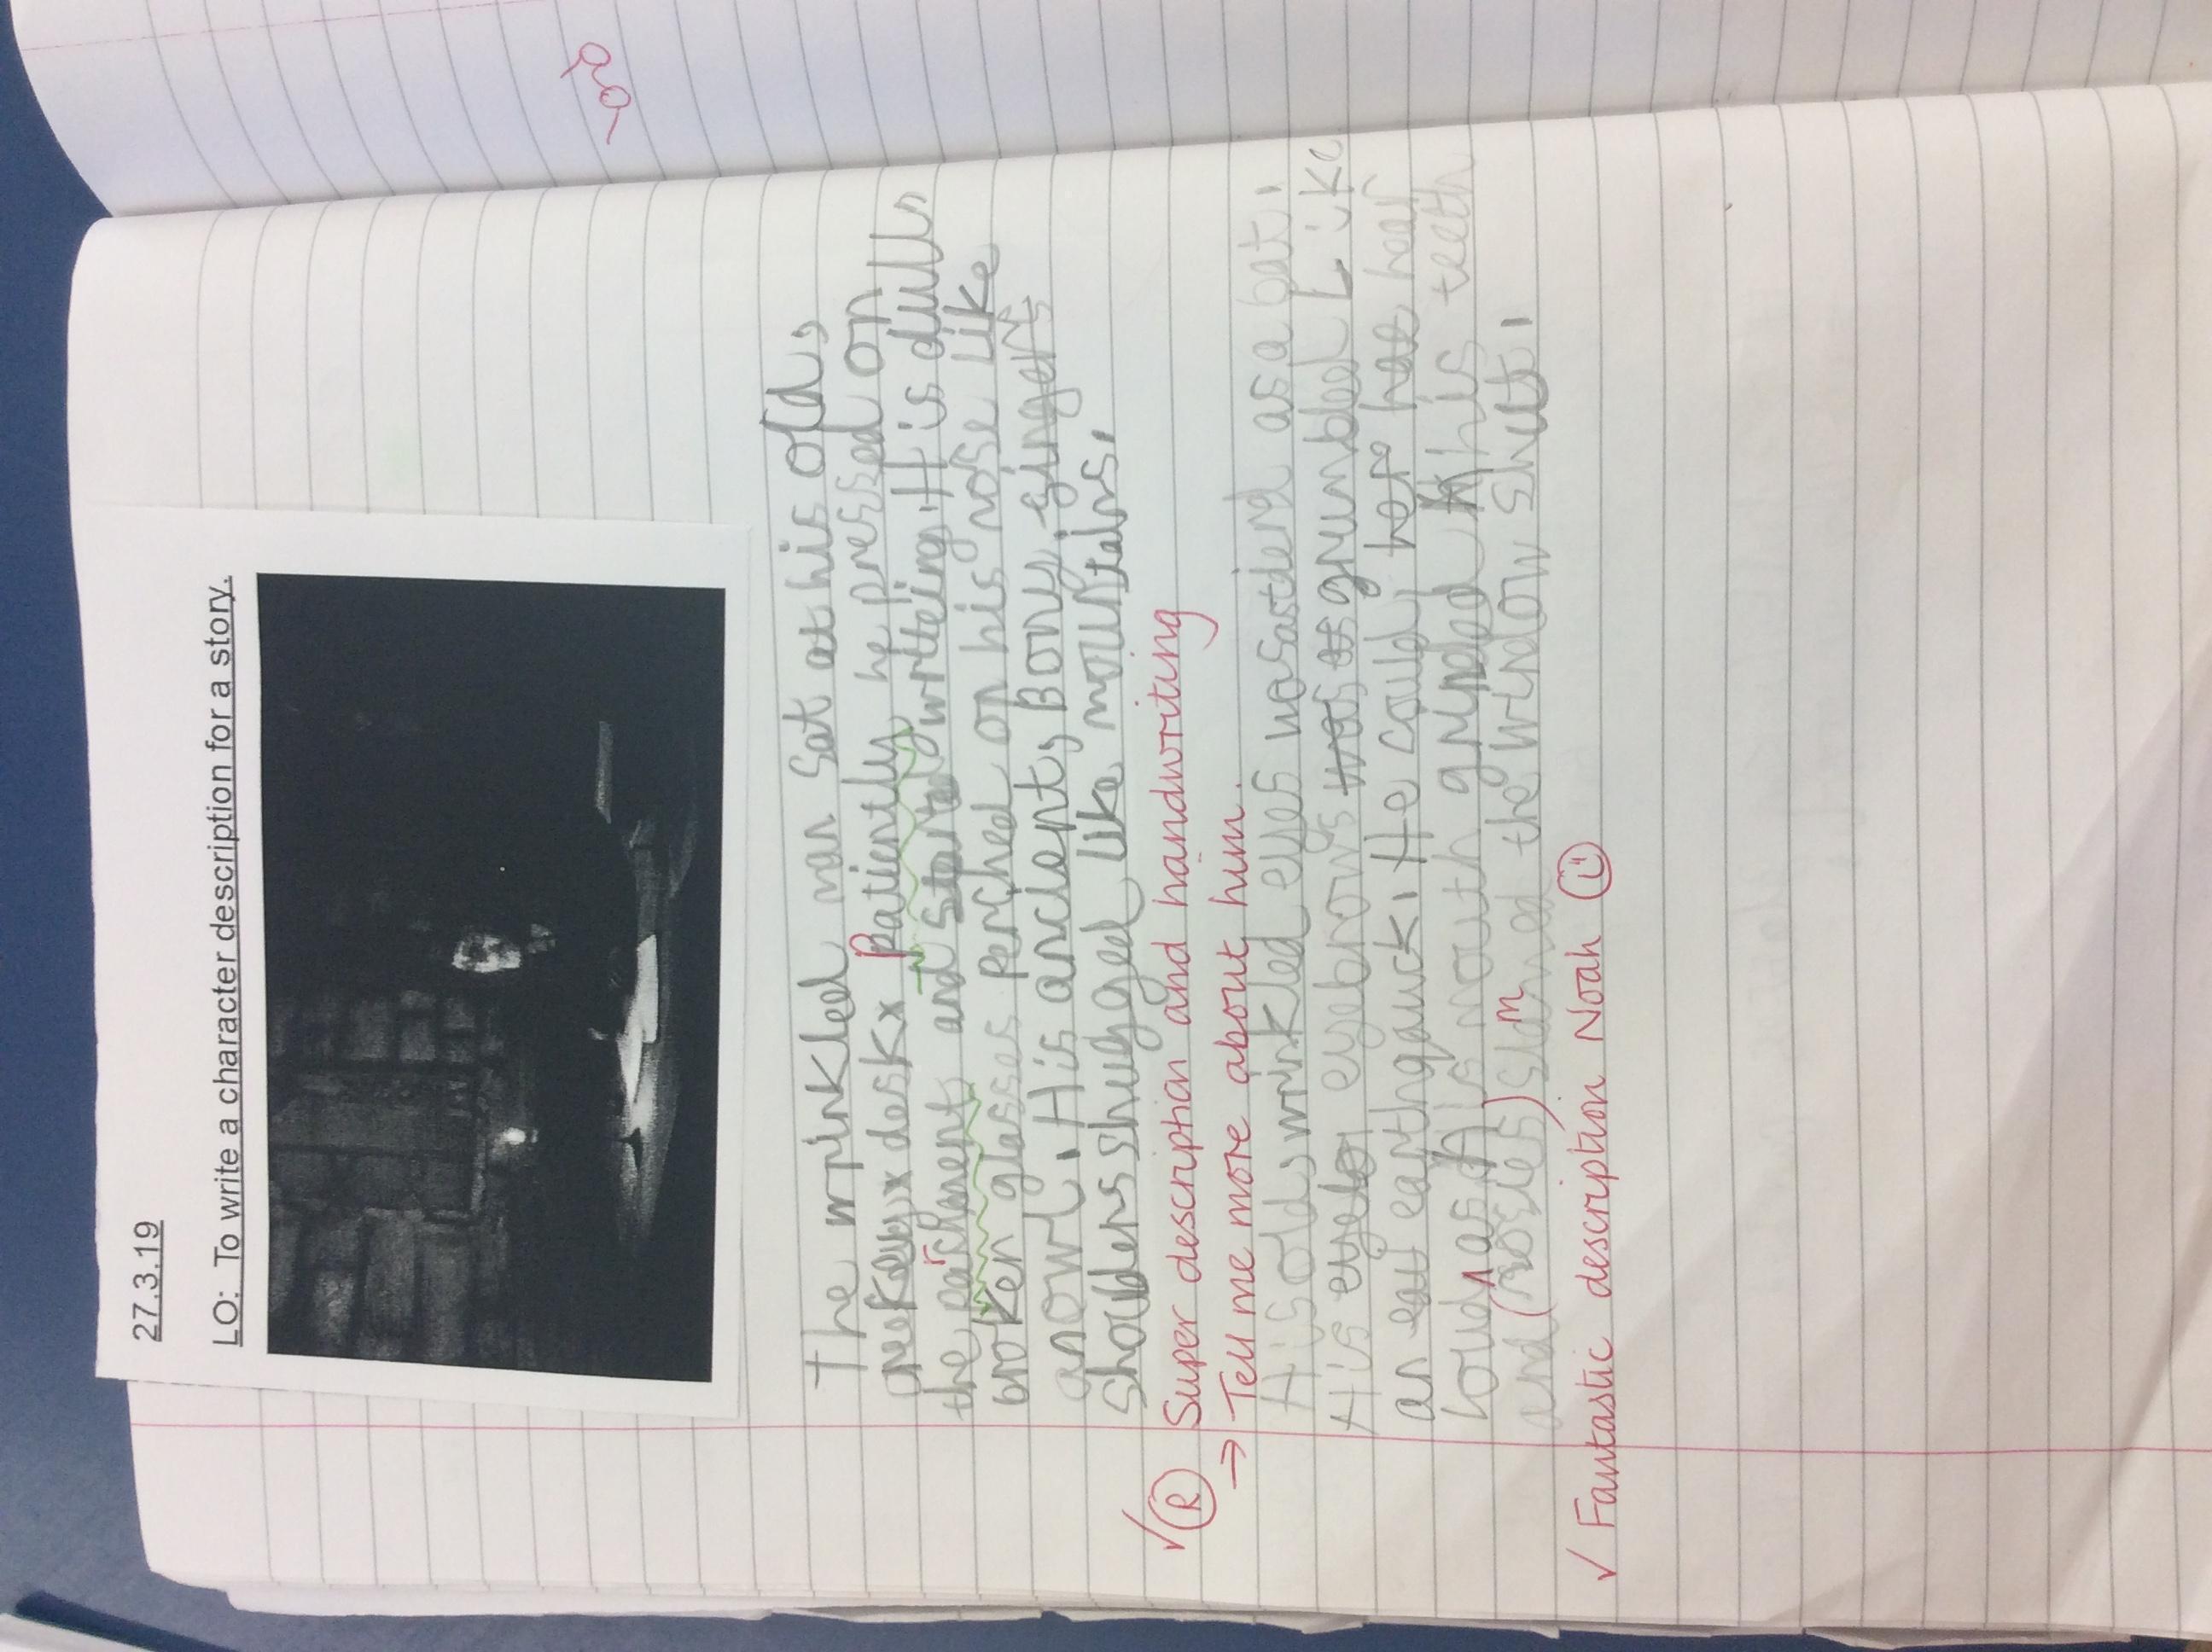 27.3.19
LO: To write a character description for a story.
The wrinkled man sat at his old,
desk x Patiently he pressed on
the parchment and started writeing. His dull,
broken glasses perched on his nose like
an owl. His ancient, Bony gingers
shoulders shugged like mountains.
✓ Ⓡ Super description and handwriting
→ Tell me more about him.
His old, wrinkled eyes was as a bat.
His eyebrows was grumbled Like
an earthqauck. He could hear
Loud as his mouth his teeth
and (nosies) m the window shut.
✓ Fantastic description Noah